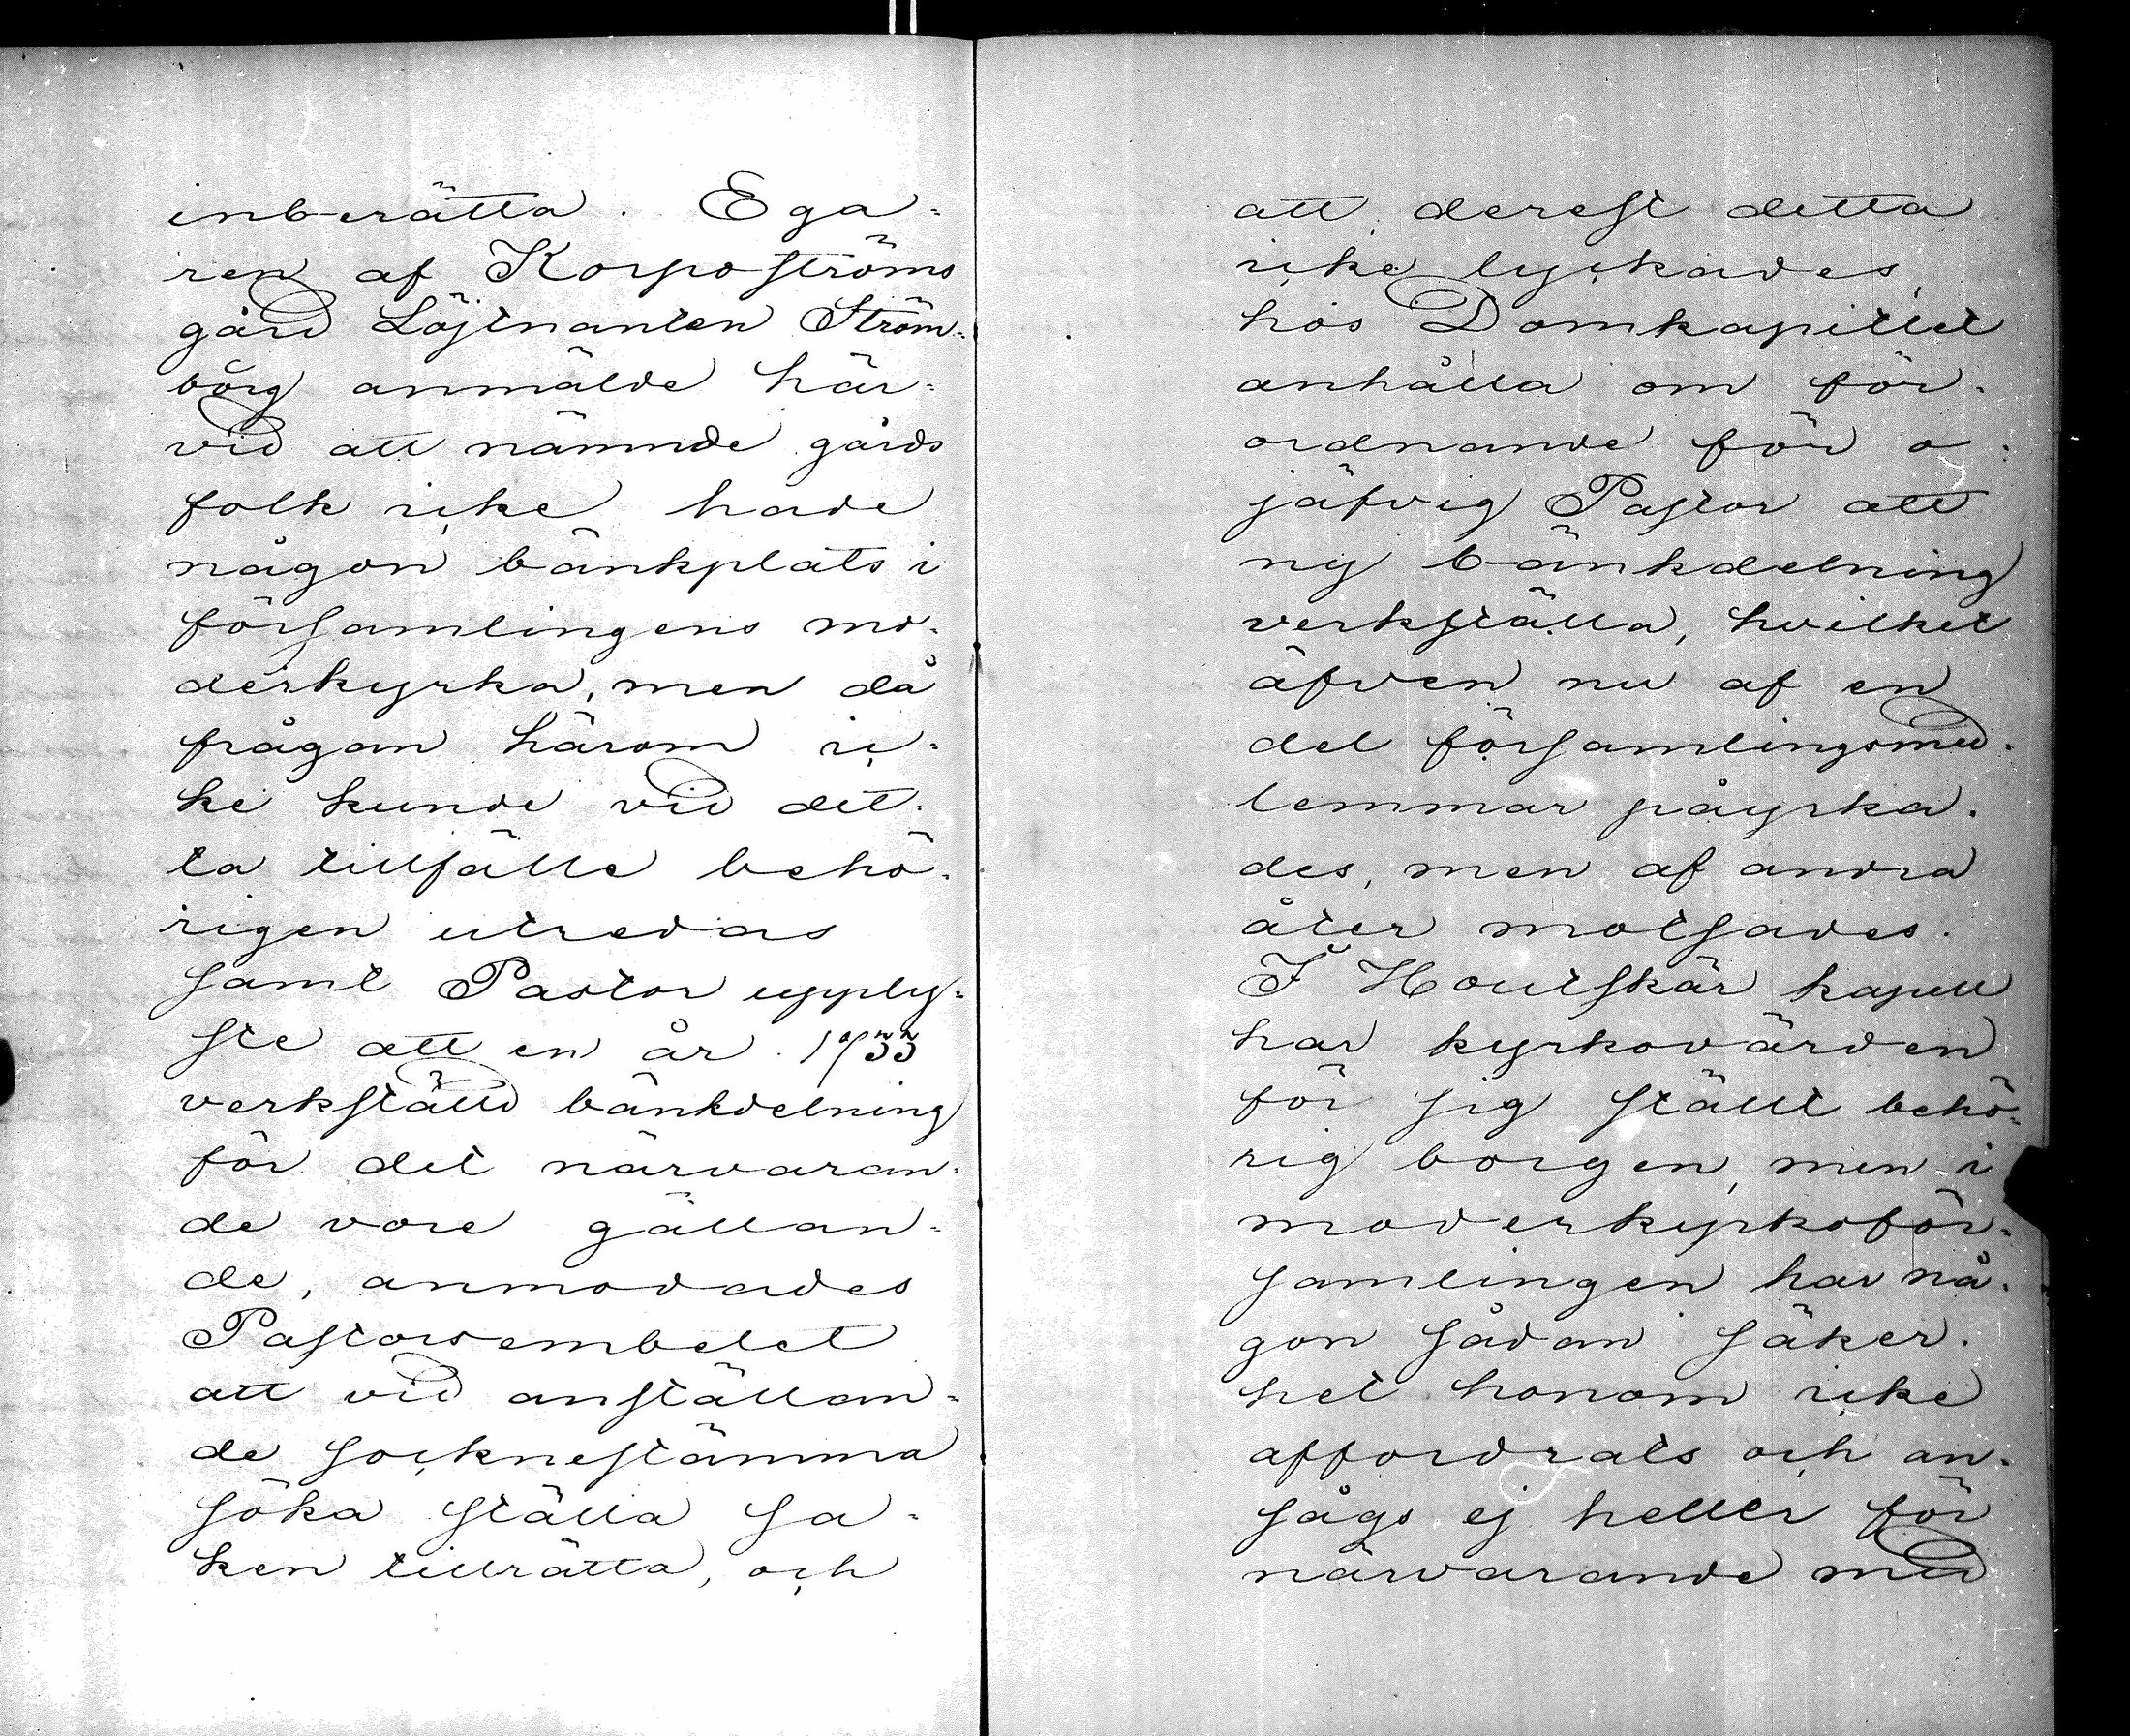 inberätta. Ega=
ren af Korpoströms
gård Löjtnanten Ström=
börg anmälde här=
vid att nämnde gårds
folk icke hade
någon bänkplats i
församlingens mo=
derkyrka, men då
frågan härom ic=
ke kunde vid det=
ta tillfälle behö=
rigen utredas
samt Pastor upply=
ste att en år 1733
verkställd bänkdelning
för det närvaran=
de vore gällan=
de, anmodades
Pastorsembetet
att vid anställan=
de socknestämma
söka ställa sa=
ken tillrätta, och
att derest detta
icke lyckades,
hos Domkapitlet
anhålla om för=
ordnande för o=
jäfvig Pastor att
ny bänkdelning
verkställa, hvilket
äfven nu af en
del församlingsmed=
lemmar påyrka=
des, men af andra
åter motsades.
I Houtskär kapell
har kyrkovärden
för sig ställt behö=
rig borgen, men i
moderkyrkoför=
samlingen har nå=
gon sådan säker=
het honom icke
affordrats och an=
sågs ej heller för
närvarande med